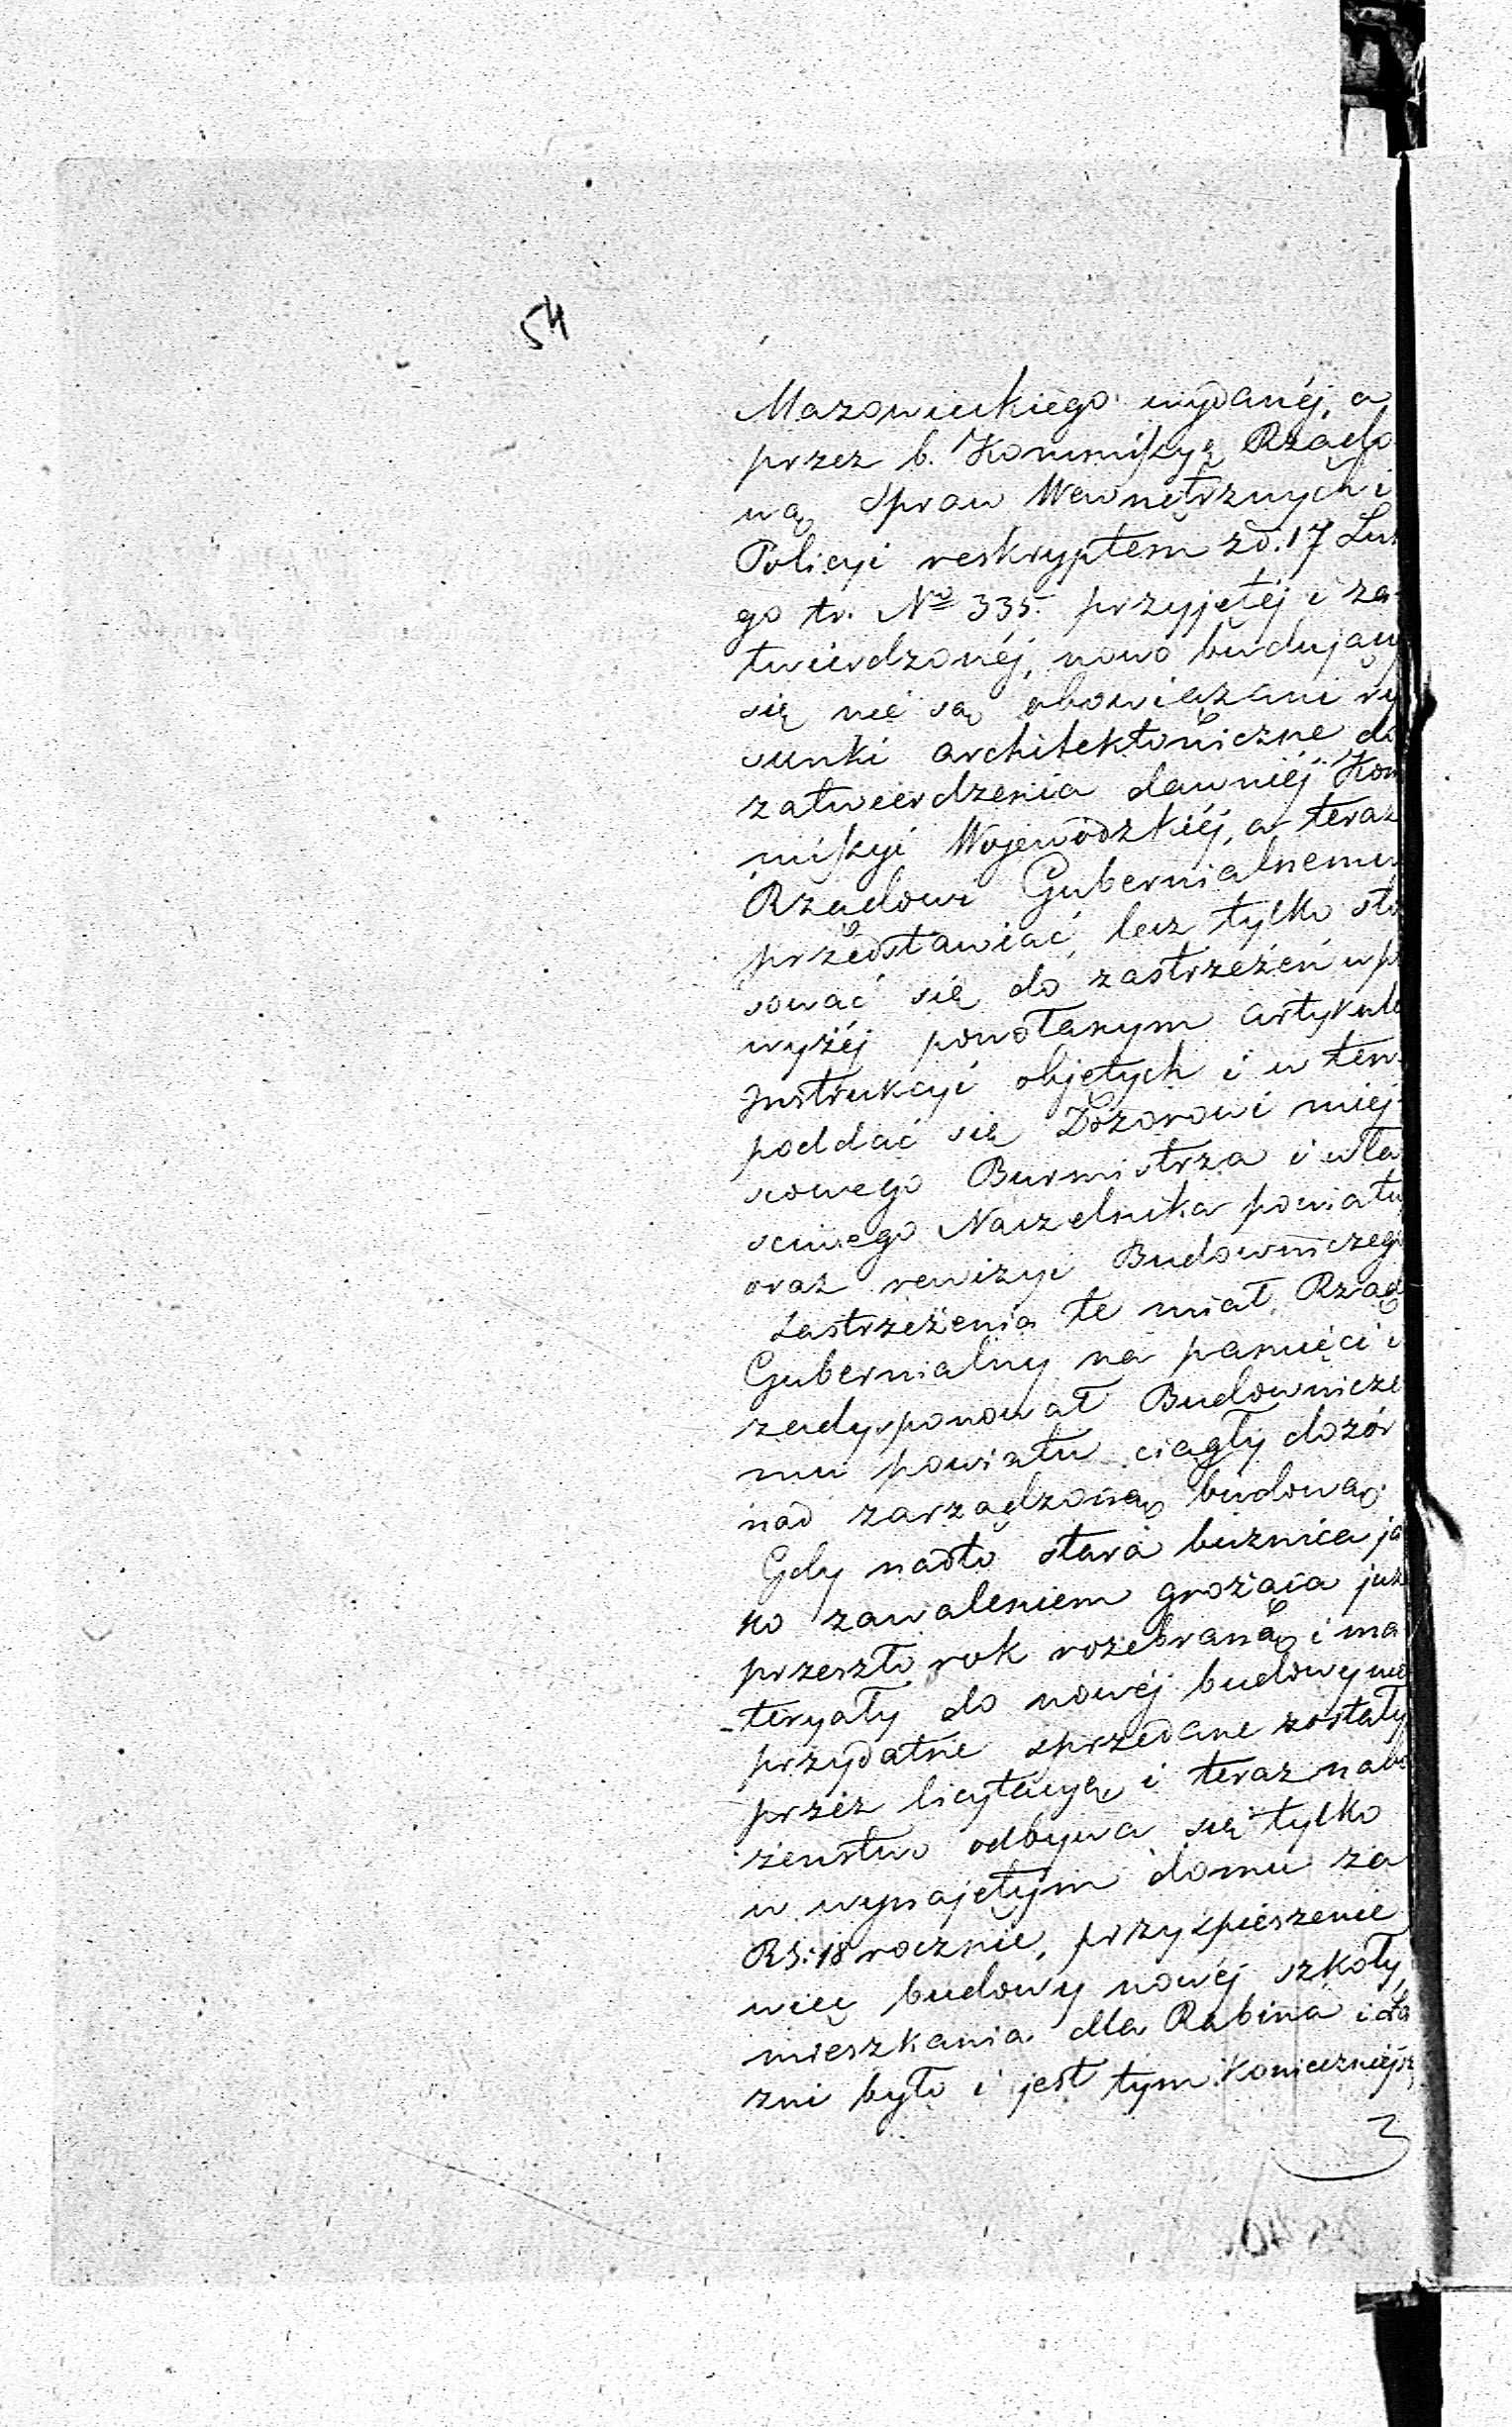 54
Mazowieckiego wydanéj, a
przez b. Kommißyą Rządo
wą Spraw Wewnętrznych i
Policyi reskryptem zd. 17 Lut
go tr. No 335. przyjętéj i za-
twierdzonéj, nowo budujący
się nie są obowiązani ry
sunki architektoniczne do
zatwierdzenia dawniéj Kom
mißyi Wojewódzkiéj, a teraz
Rządowi Gubernialnemu
przedstawiać, lecz tylko sto
sować się do zastrzeżeń w po
wyżéj powołanym artykule
Instrukcyi objętych i w tem
poddać się Dozorowi miej-
scowego Burmistrza i wła
sciwego Naczelnika powiatu
oraz rewizyi Budowniczego
Zastrzeżenia te miał Rząd
Gubernialny na pamięci i
zadysponował Budownicze
mu powiatu ciągły dozór
nad zarządzoną budową.
Gdy nadto stara bużnica ja
ko zawaleniem grożąca już
przeszło rok rozebraną i ma
-teryały do nowéj budowy nie
przydatne sprzedane zostały
przez licytacyą i teraz nabo
żeństwo odbywa się tylko
w wynajętym domu za
RS: 18 rocznie, przyśpieszenie
więc budowy nowéj szkoły,
mieszkania dla Rabina i Ła
zni było i jest tym konieczniejsz
40